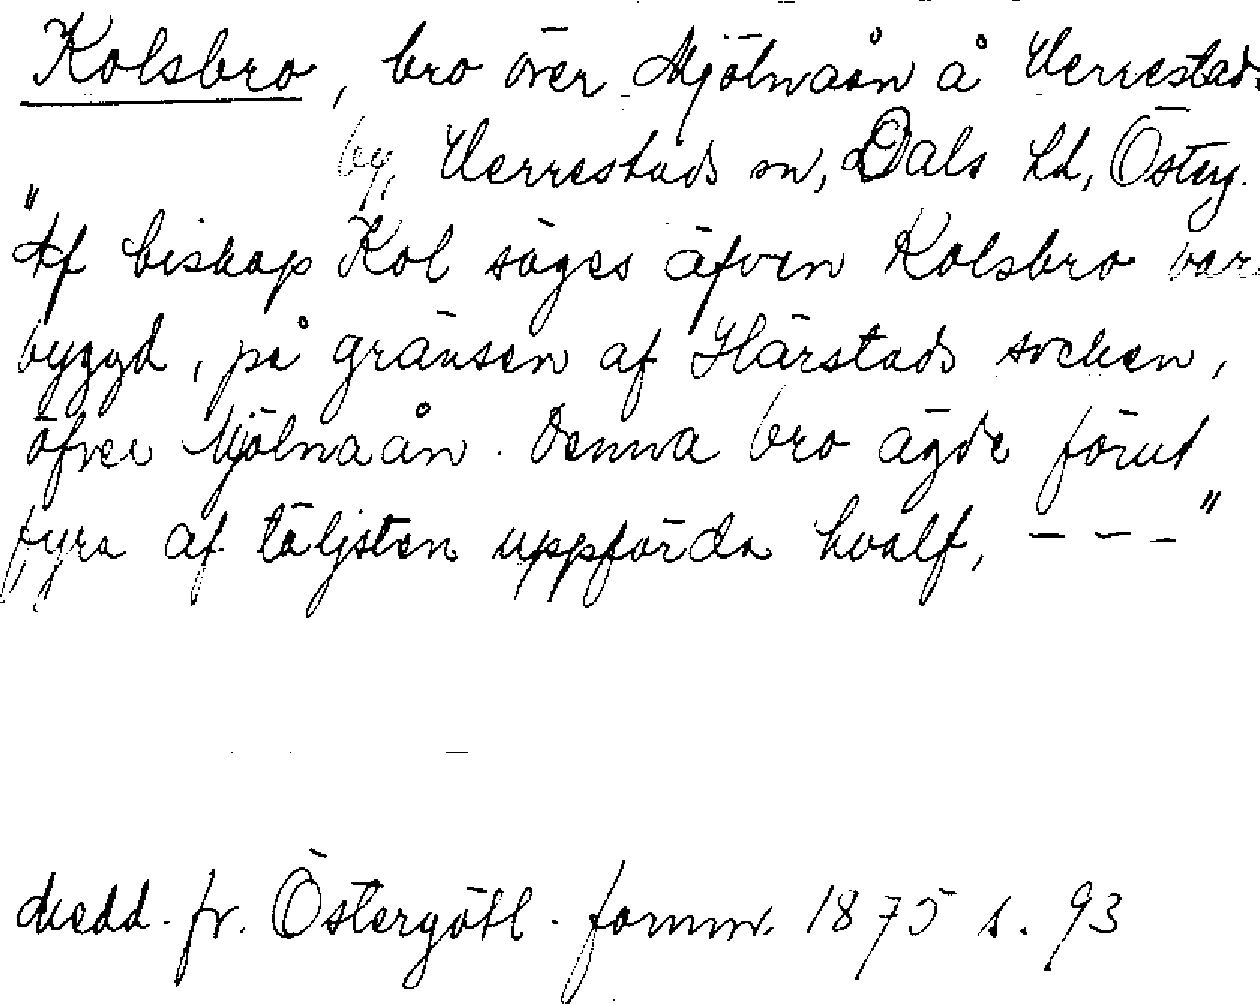 Kolsbro, bro över Mjölnaån å Herrestads
by, Herrestads sn, Dals hd, Österg.
"Af biskop Kol säges äfven Kolsbro vara
byggd, på gränsen af Härstads socken,
öfver Mjölnaån. Denna bro ägde förut
fyra af täljsten uppförda hvalf, – – – "
Medd. fr. Östergötl. fornm. 1875 s. 93